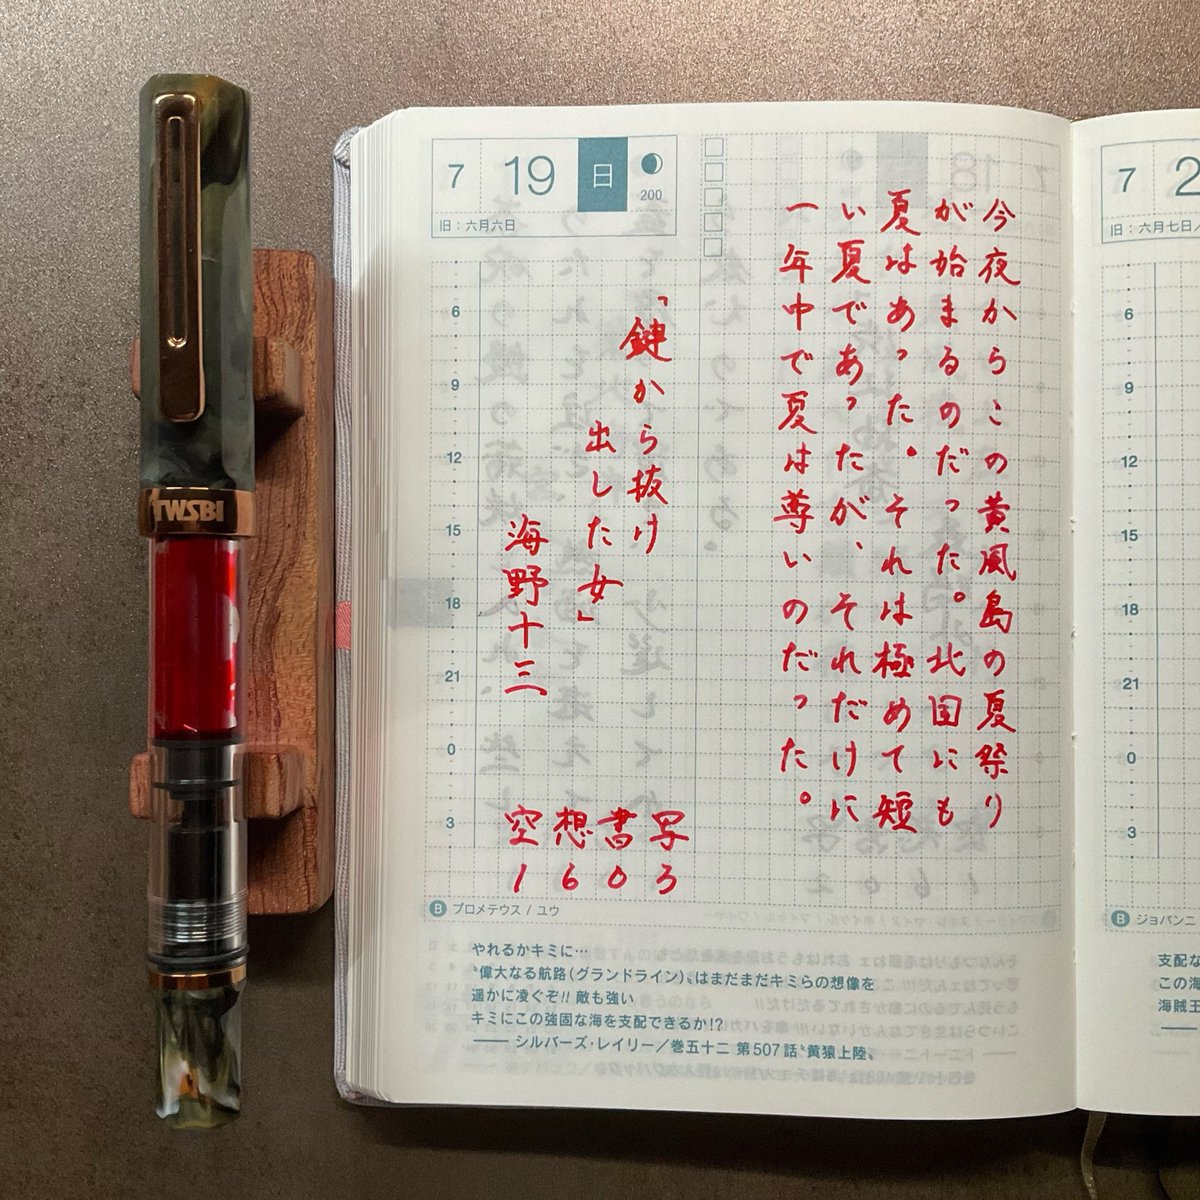 TWSBI
7 19 日 200
旧：六月六日
今夜からこの黄風島の夏祭り
が始まるのだった。北国にも
夏はあった。それは極めて短
い夏であったが、それだけに
一年中で夏は尊いのだった。
「鍵から抜け
出した女」
海野十三
空想書写
1603
6
9
12
15
18
21
0
3
B プロメテウス / ユウ
やれるかキミに…
〝偉大なる航路（グランドライン）〟はまだまだキミらの想像を
遥かに凌ぐぞ!! 敵も強い
キミにこの強固な海を支配できるか!?
―― シルバーズ・レイリー／巻五十二 第507話〝黄猿上陸〟
7 2
旧：六月七日／
6
9
12
15
18
21
0
3
B ジョバンニ
支配な
この海
海賊王